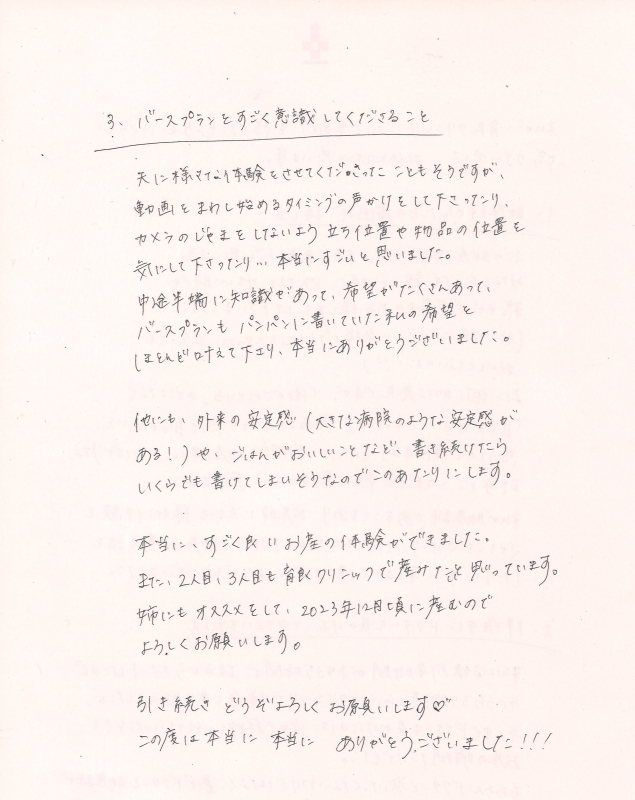 3、バースプランをすごく意識してくださること
先に様々な体験をさせてくださったこともそうですが、
動画をまわし始めるタイミングの声かけをして下さったり、
カメラのじゃまをしないよう立ち位置や物品の位置を
気にして下さったり…本当にすごいと思いました。
中途半端に知識があって、希望がたくさんあって、
バースプランもパンパンに書いていた私の希望を
ほとんど叶えて下さり、本当にありがとうございました。
他にも、外来の安定感(大きな病院のような安定感が
ある!)や、ごはんがおいしいことなど、書き続けたら
いくらでも書けてしまいそうなのでこのあたりにします。
本当に、すごく良いお産の体験ができました。
また、2人目、3人目も育良クリニックで産みたいと思っています。
姉にもオススメをして、2023年12月頃に産むので
よろしくお願いします。
引き続きどうぞよろしくお願いします♡
この度は本当に本当に ありがとうございました!!!